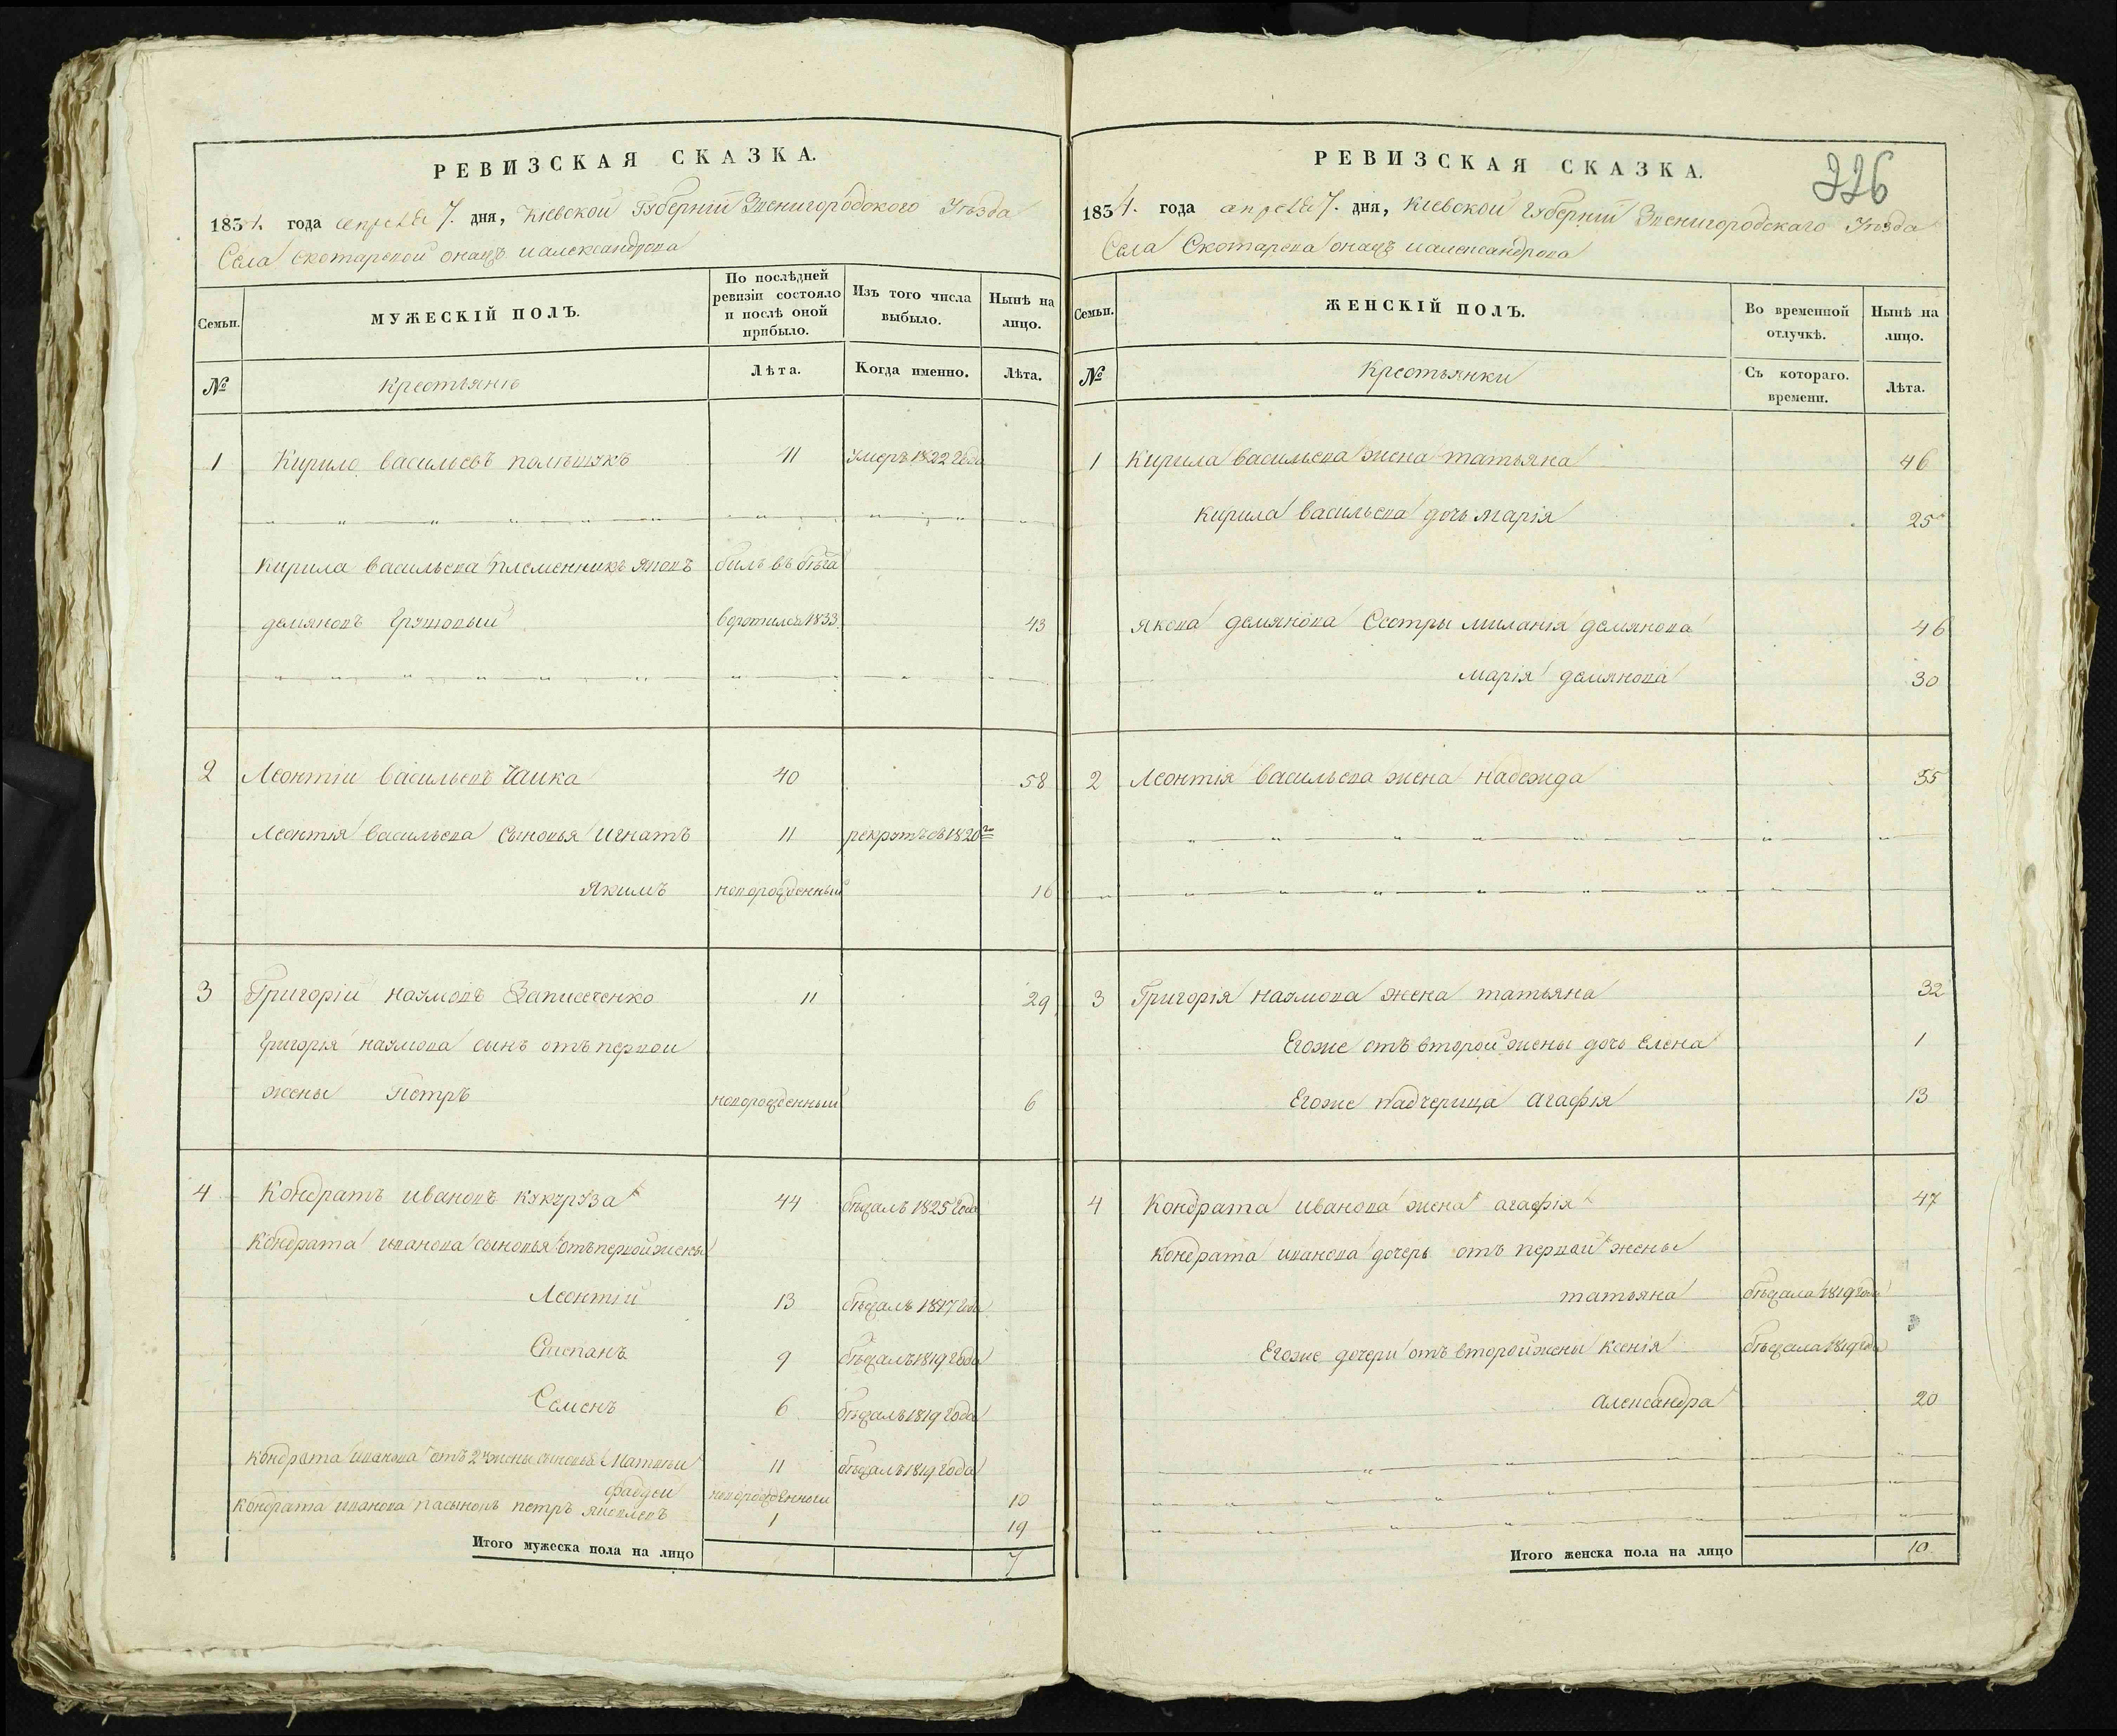 РЕВИЗСКАЯ СКАЗКА.
1834. года апреля 7. дня, Кіевской Губерніи Звенигородского Уезда
Села Скотаревой онацъ иалександрова
Семьи.
МУЖЕСКІЙ ПОЛЪ.
По послѣдней ревизіи состояло и послѣ оной прибыло.
Изъ того числа выбыло.
Нынѣ на лицо.
№
Крестьяніе
Лѣта.
Когда именно.
Лѣта.
1 Кирило васильевъ полѣщукъ 41 умеръ 1822 года
Кирила васильева племенникъ яковъ билъ въ бѣга
демяновъ Грушовый воротился 1833 43
2 Леонтіи васильевъ Чаика 40 58
Леонтія васильева сыновья Игнатъ 11 рекрутъ въ 1820 го
Якимъ новорожденный 16
3 Григоріи наумовъ Записоченко 11 29
Григорія наумова сынъ отъ первои
жены Петръ новорожденный 6
4 Кондратъ ивановъ кукуруза 44 бѣжалъ 1825 года
Кондрата иванова сыновья отъ первой жены
Леонтій 13 бѣжалъ 1817 года
Степанъ 9 бѣжалъ 1819 года
Семенъ 6 бѣжалъ 1819 года
Кондрата иванова отъ 2й жены сыновья Матвѣи 11 бѣжалъ 1819 года
фадѣи новорожденныи 10
Кондрата иванова пасынокъ петръ яковлевъ 1 19
Итого мужеска пола на лицо 7
226
РЕВИЗСКАЯ СКАЗКА.
1834. года апреля 7. дня, Кіевской Губерніи Звенигородскаго Уезда
Села Скотарева онацъ иалександрова
Семьи.
ЖЕНСКІЙ ПОЛЪ.
Во временной отлучкѣ.
Нынѣ на лицо.
№
Крестьянки
Съ котораго. времени.
Лѣта.
1 Кирила васильева жена татьяна 46
Кирила васильева дочь марія 25
якова демянова Сестры миланія демянова 46
марія демянова 30
2 Леонтія васильева жена надежда 55
3 Григорія наумова жена татьяна 32
Егоже отъ второй жены дочь Елена 1
Егоже падчерица агафія 13
4 Кондрата иванова жена агафія 47
Кондрата иванова дочерь отъ первой жены
татьяна бѣжала 1819 года
Егоже дочери отъ второй жены ксенія бѣжала 1819 года
александра 20
Итого женска пола на лицо 10